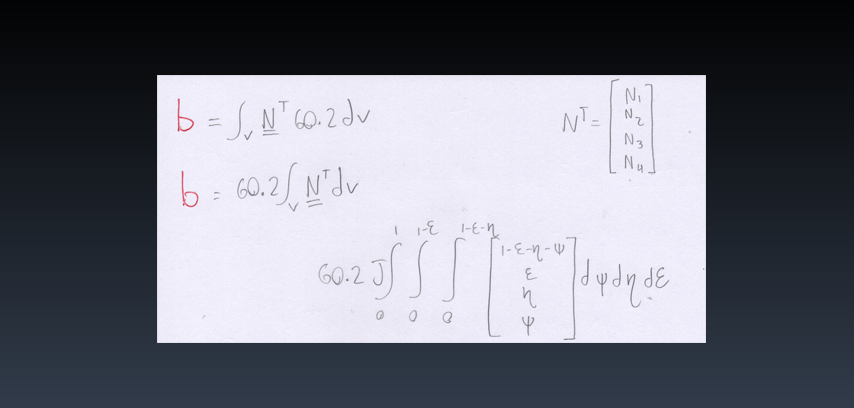 b = ∫_V N^T 60.2 dv
N^T = [N₁
N₂
N₃
N₄]
b = 60.2 ∫_V N^T dv
60.2 J ∫₀¹ ∫₀^{1-ε} ∫₀^{1-ε-η} [1-ε-η-ψ
ε
η
ψ] dψ dη dε